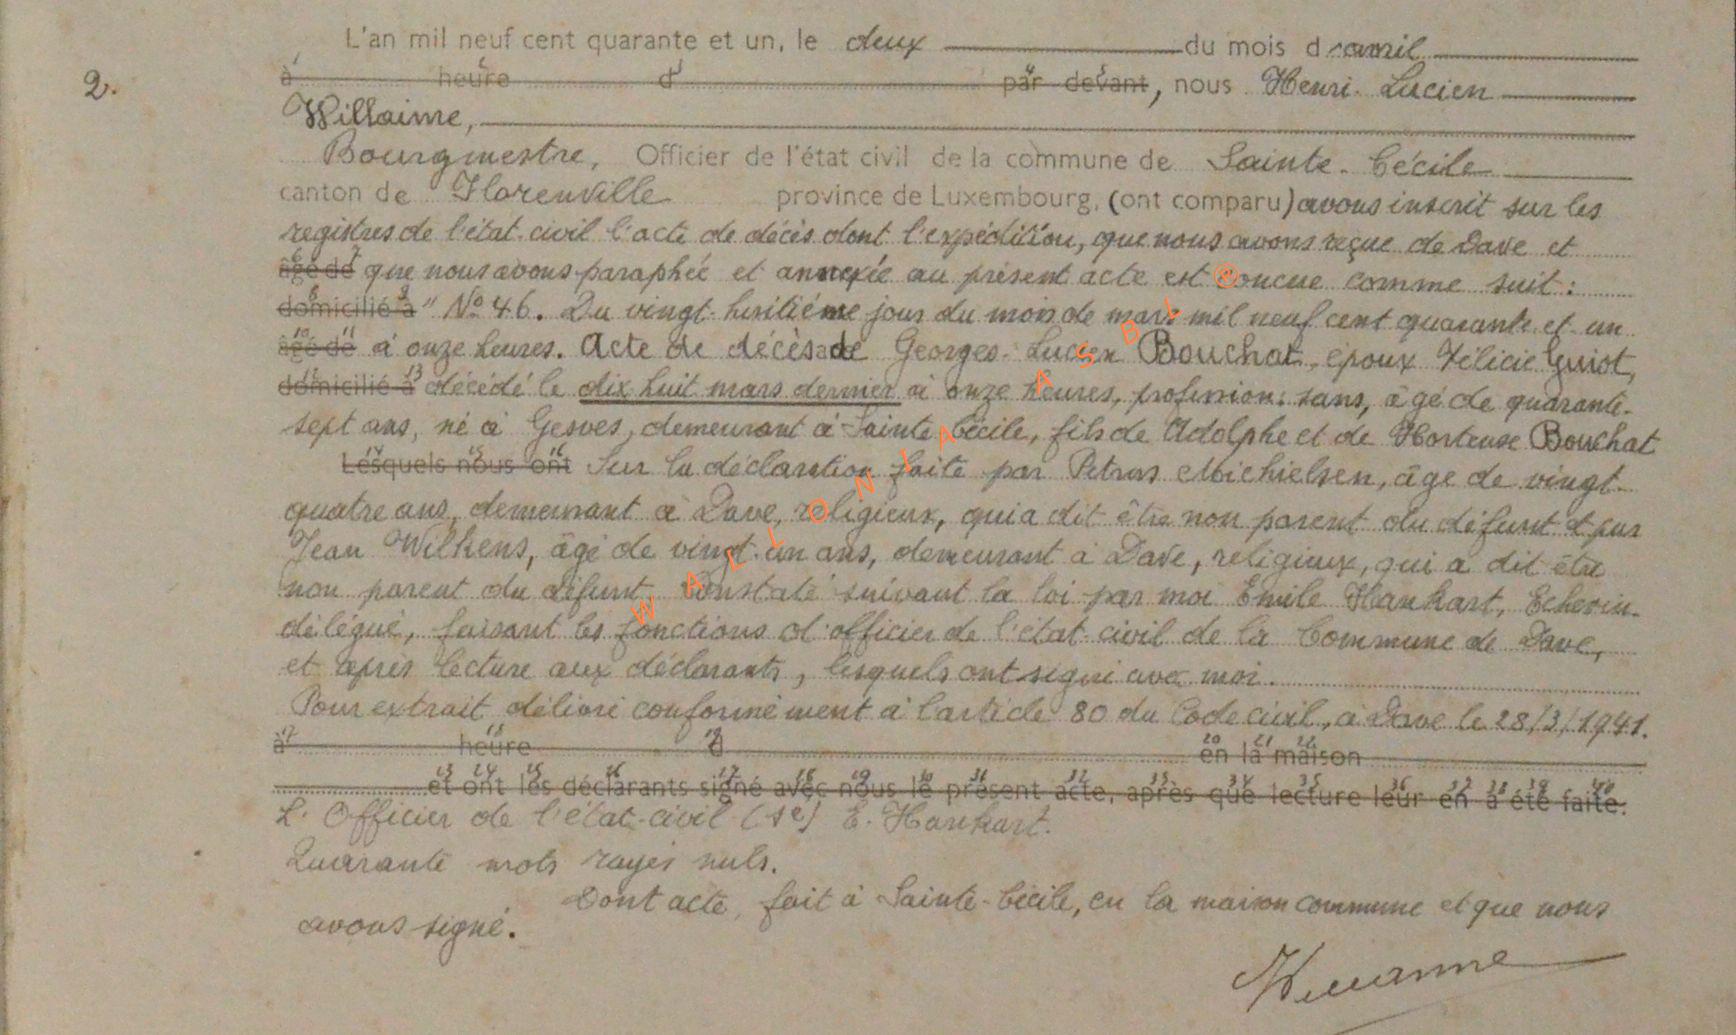 L'an mil neuf cent quarante et un, le deux du mois d'avril
2.
à heure d par devant, nous Henri-Lucien
Willaime,
Bourgmestre, Officier de l'état civil de la commune de Sainte-Cécile
canton de Florenville province de Luxembourg, (ont comparu) avons inscrit sur les
registres de l'état-civil l'acte de décès dont l'expédition, que nous avons reçue de Dave et
âgé de que nous avons paraphée et annexée au présent acte est concue comme suit :
domicilié à "No 46. Du vingt-huitième jour du mois de mars mil neuf cent quarante et un
âgé de à onze heures. Acte de décès de Georges-Lucien Bouchat, époux Félicie Guiot,
domicilié à décédé le dix huit mars dernier à onze heures, profession: sans, âgé de quarante-
sept ans, né à Gesves, demeurant à Sainte Cécile, fils de Adolphe et de Hortense Bouchat
Lesquels nous ont Sur la déclaration faite par Petrus Michielsen, âge de vingt-
quatre ans, demeurant à Dave, religieux, qui a dit être non parent du défunt et par
Jean Wilkens, âgé de vingt-un ans, demeurant à Dave, religieux, qui a dit être
non parent du défunt. Constaté suivant la loi par moi Emile Hankart, Echevin-
délégué, faisant les fonctions d'officier de l'état-civil de la Commune de Dave,
et après lecture aux déclarants, lesquels ont signé avec moi.
Pour extrait délivré conformément à l'article 80 du Code civil, à Dave le 28/3/1941.
à heure d en la maison
et ont les déclarants signé avec nous le présent acte, après que lecture leur en a été faite.
L'Officier de l'état-civil (sé) E. Hankart.
Quarante mots rayés nuls.
Dont acte, fait à Sainte-Cécile, en la maison commune et que nous
avons signé.
WALLONIA ASBL